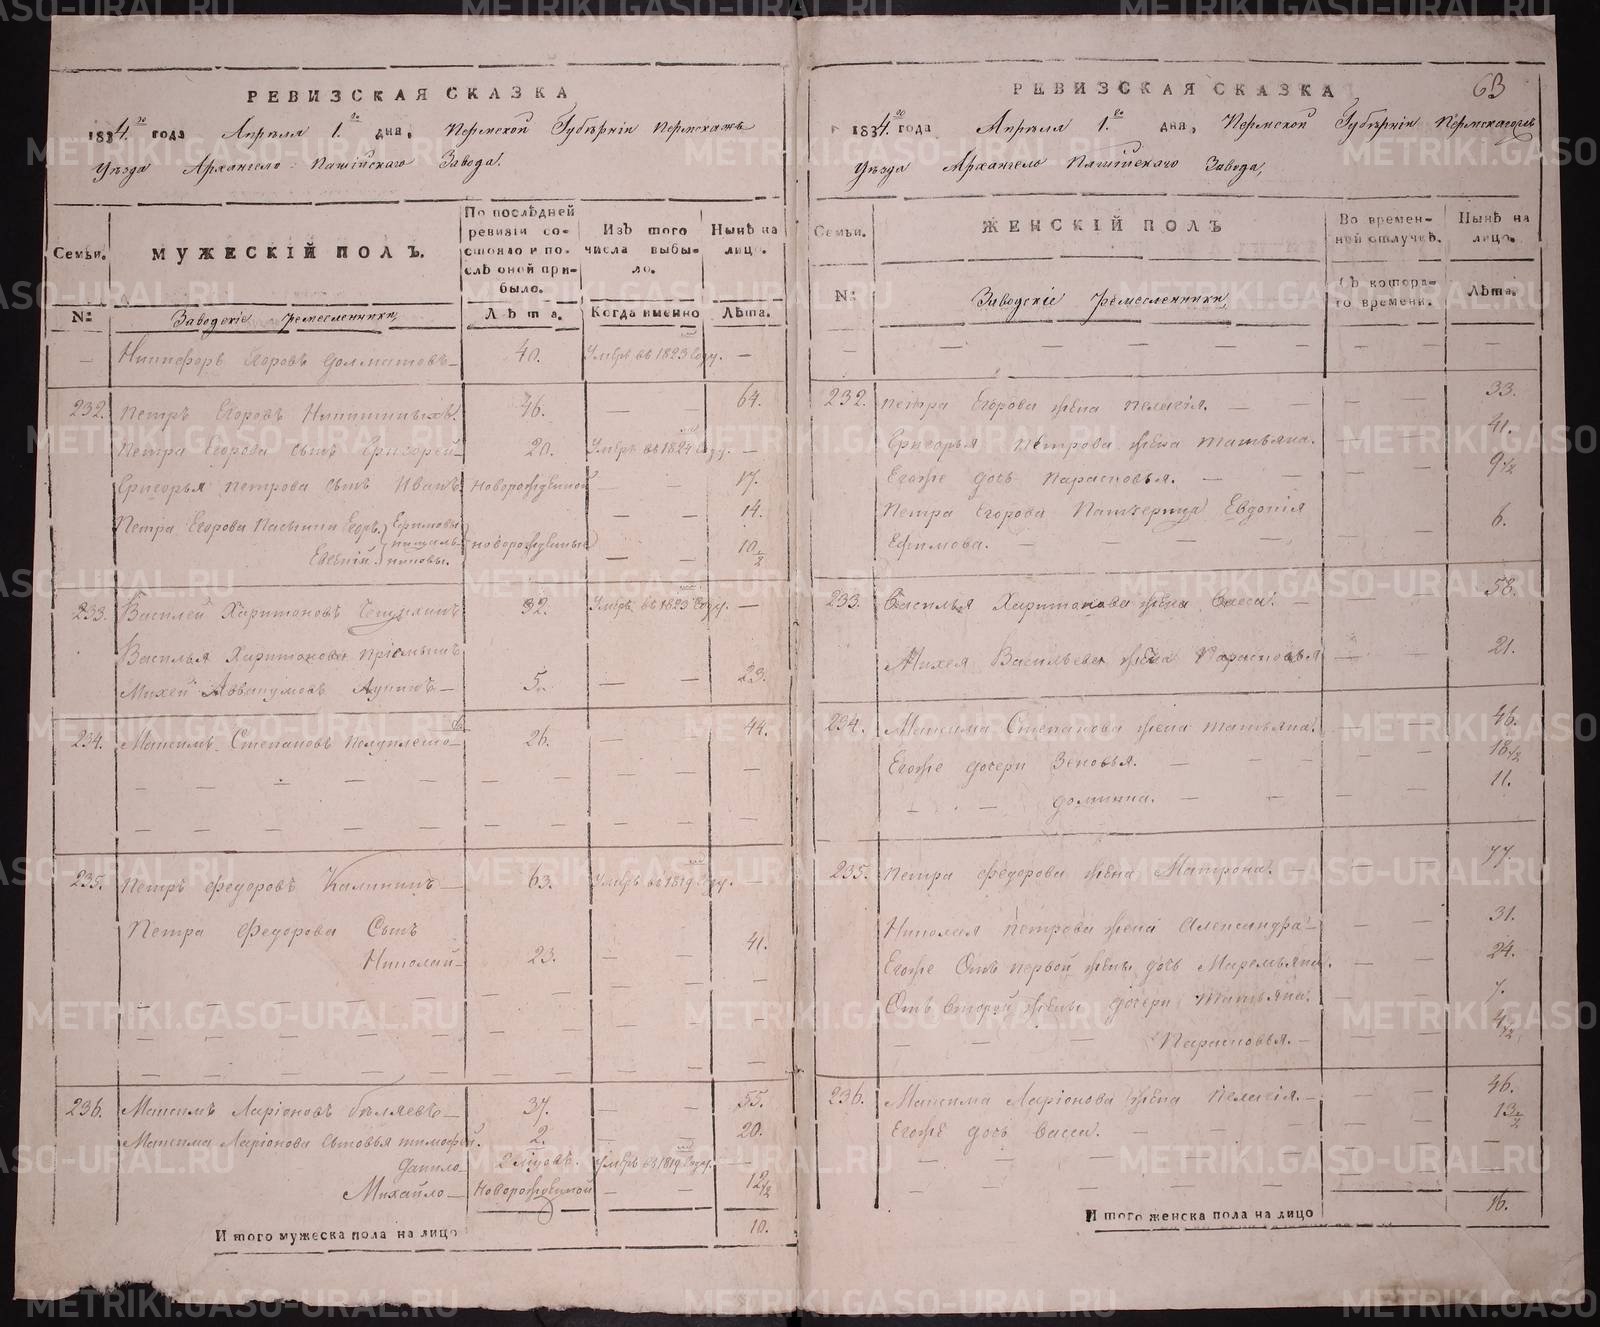 РЕВИЗСКАЯ СКАЗКА
1834.го года Апрѣля 1.го дня, Пермской Губѣрніи Пермскагѡ
Уѣзда Архангело-Пашійскаго Завода.
Семьи.
МУЖЕСКІЙ ПОЛЪ.
По послѣдней ревизіи состояло и послѣ оной прибыло.
Изъ того числа выбыло.
Нынѣ на лицо.
№ Заводскіе ремесленники
Лѣта. Когда именно Лѣта.
— Никифоръ Егоровъ Долматовъ — 40. Умеръ въ 1823 году. —
232. Петръ Егоровъ 46. — — 64.
Петра Егорова сынъ Григорей — 20. Умеръ въ 1824 году. —
Григорья Петрова сынъ Иванъ. Новорожденной — — 17.
Петра Егорова Пасынки Егоръ. Ефимовы — — 14.
Евгѣній. новорожденные — — 10 1/2
233. Василей Харитоновъ 32. Умеръ въ 1823 году. —
Василья Харитонова пріемышъ
Михей Аввакумовъ 5. — — 23.
234. Максимъ Степановъ 26. — — 44.
235. Петръ Федоровъ Калининъ — 63. Умеръ въ 1819 году. —
Петра Федорова Сынъ
Николай — 23. — — 41.
236. Максимъ Ларіоновъ Бѣляевъ — 37. — — 55.
Максима Ларіонова сыновья Тимофей. 2. — — 20.
Данило — Умеръ въ 1819 году. —
Михайло — Новорожденной — — 12 1/2
И того мужеска пола на лицо 10.
63
РЕВИЗСКАЯ СКАЗКА
1834.го года Апрѣля 1.го дня, Пермской Губѣрніи Пермскагоже
Уѣзда Архангело Пашійскаго Завода,
Семьи.
ЖЕНСКІЙ ПОЛЪ
Во временной отлучкѣ.
Нынѣ на лицо.
№ Заводскіе ремесленники,
Съ которого времени. Лѣта.
232. Петра Егорова жена Пелагія. — — — 33.
Григорья Петрова жена Татьяна. — — 41.
Егоже дочь Парасковья. — — — 9 1/2
Петра Егорова Падчерица Евдокія
Ефимова. — — — 6.
233. Василья Харитонова жена Васса. — — — 58.
Михея Васильева жена Парасковья — — 21.
234. Максима Степанова жена Татьяна. — — 46.
Егоже дочери Зеновья. — — — 18 1/2
Домника. — — — 11.
235. Петра Федорова жена Матрона. — — — 77.
Николая Петрова жена Александра — — — 31.
Егоже Отъ первой жены дочь Маремьяна. — — 24.
Отъ второй жены дочери Татьяна. — — 7.
Парасковья. — 4 1/2
236. Максима Ларіонова жена Пелагія. — — — 46.
Егоже дочь Васса. — — — 13 1/2
И того женска пола на лицо 16.
METRIKI.GASO-URAL.RU